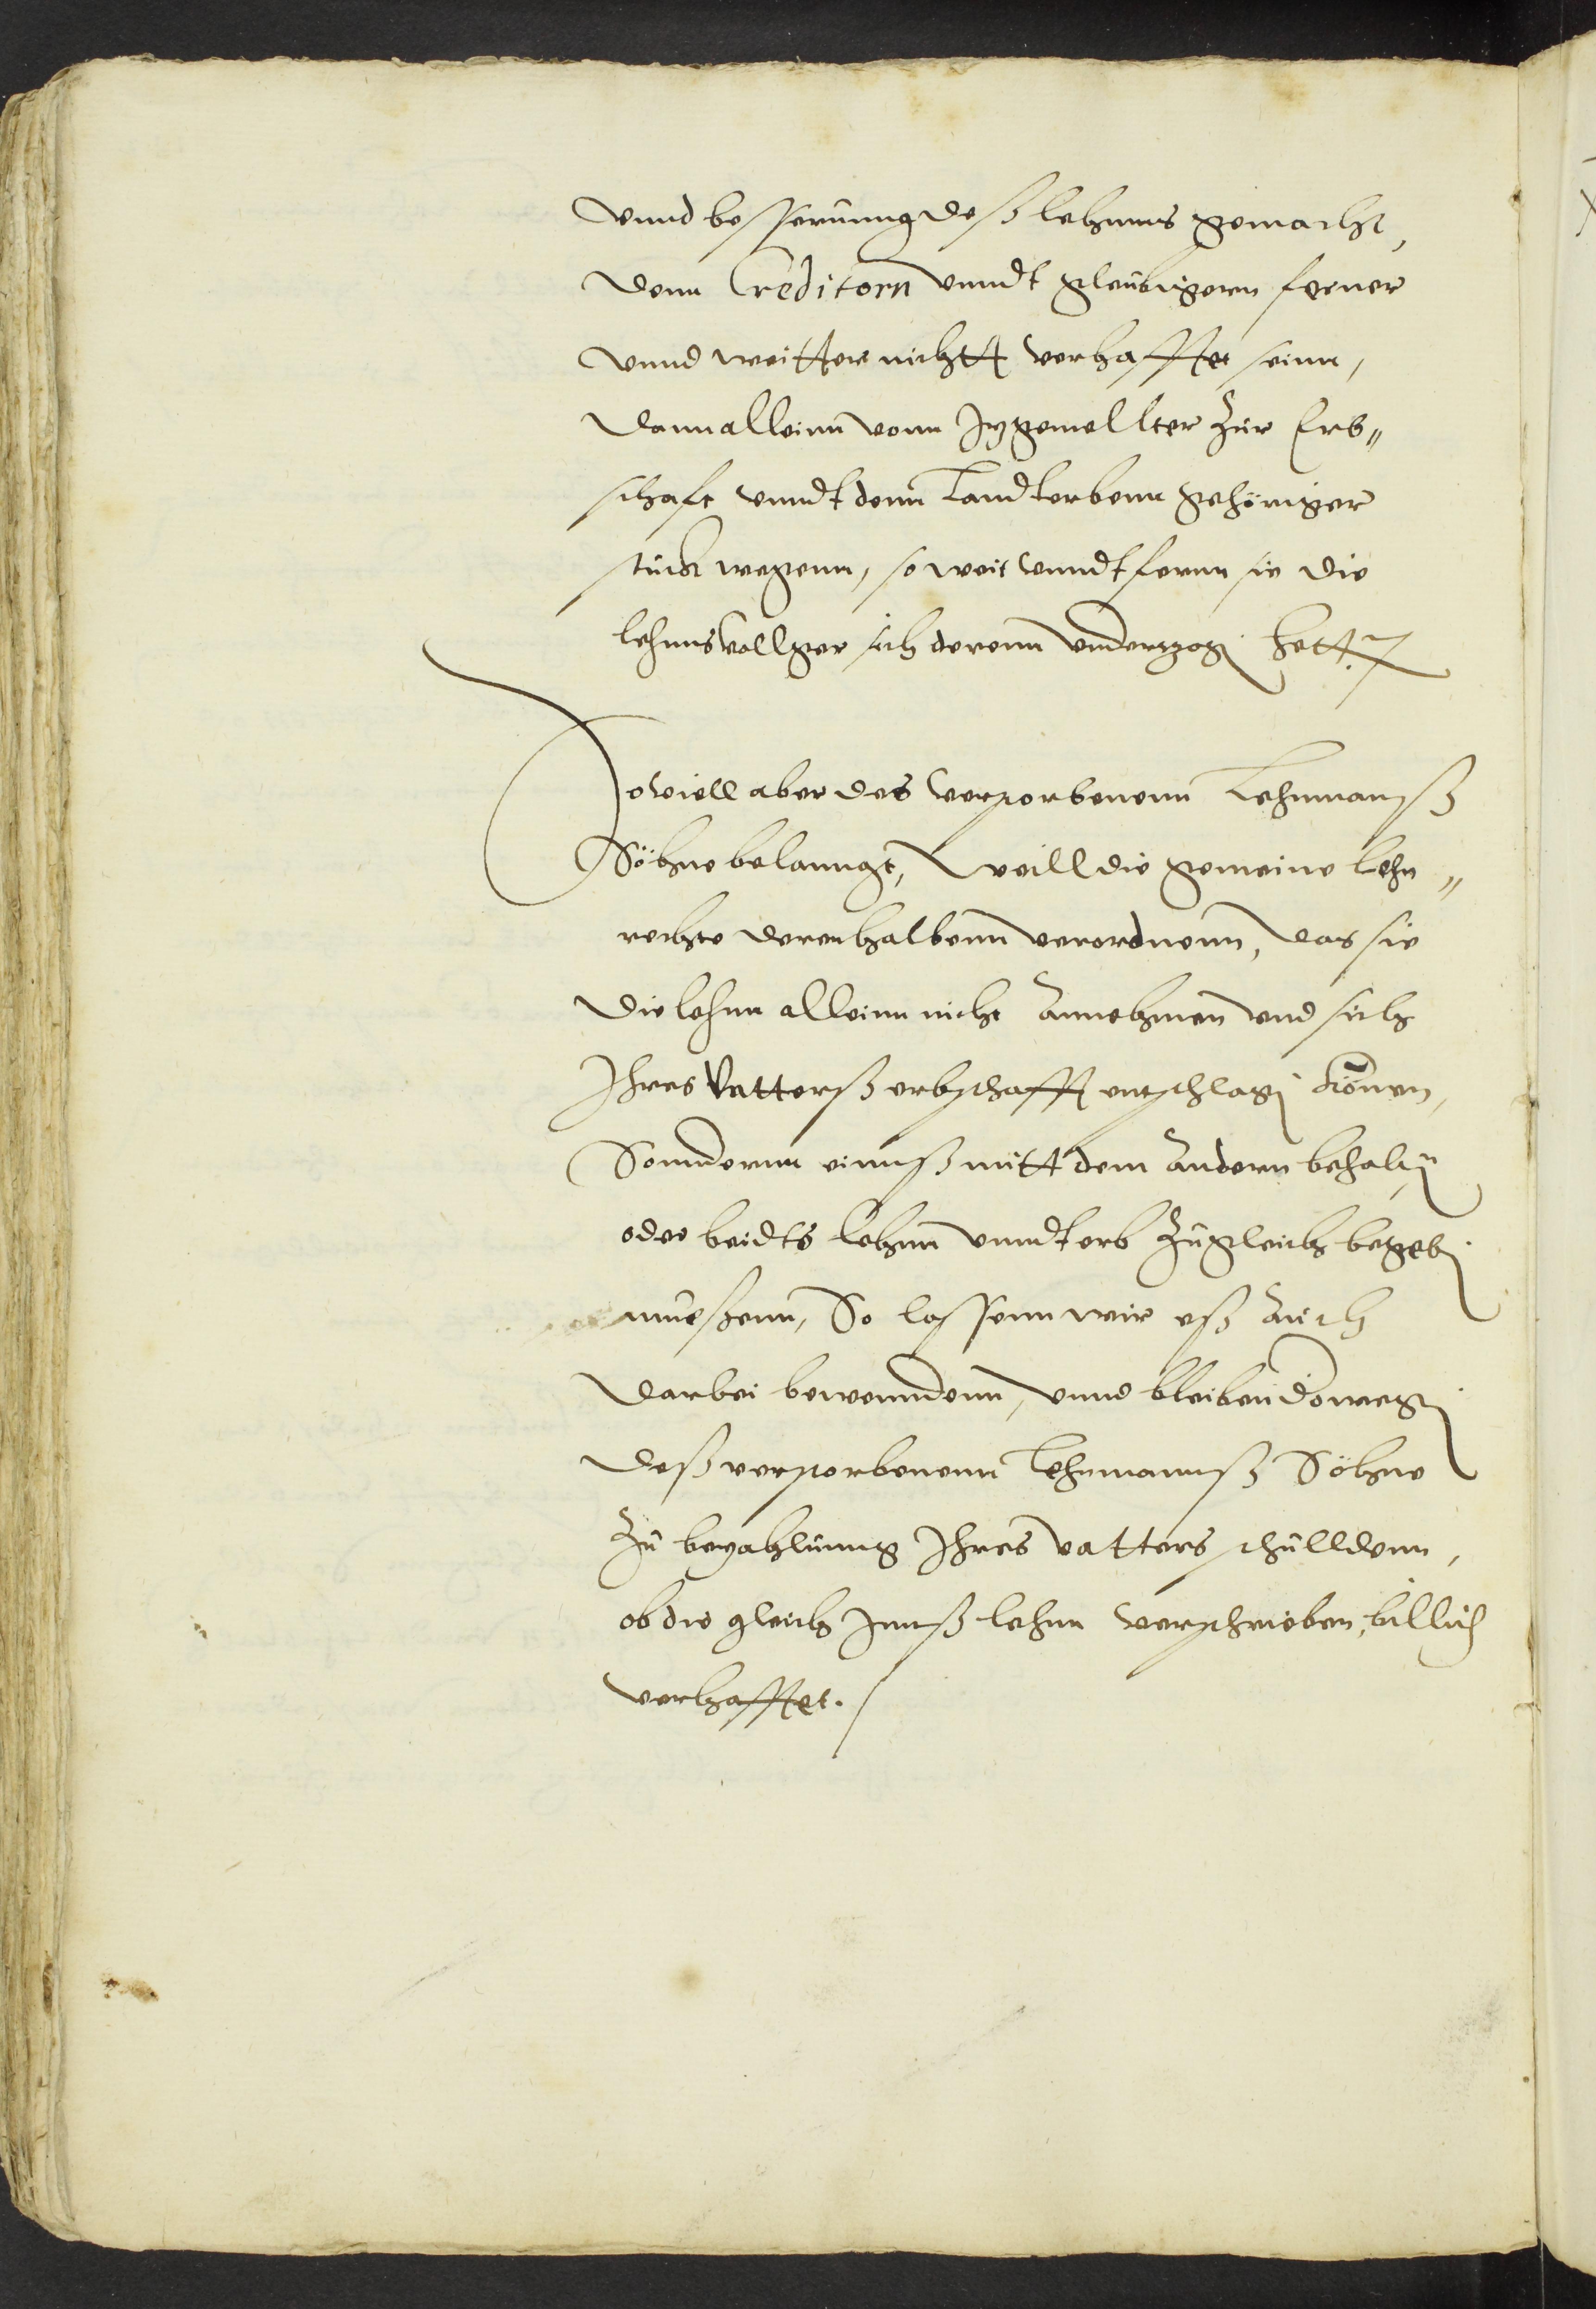 vnnd besserunng deß lehnns gemacht,
denn Creditorn vnndt gleubigern ferner
vnnd weitter nichtt verhafftet seinn,
dann alleinn vonn Jtzgemellter zur Erb„
schafft vnndt denn Landterbenn gehöriger
stuck wegenn, so weit vnndt fernn sie die
lehnnsvollger sich derenn vnderzog hett.
Soviell aber des verstorbenenn Lehnmanß
Söhne belanngt, weill die gemeine lehn„
rechte derenhalbenn verordnenn, das sie
die lehnn alleinn nicht annehmen vnd sich
Jhres Vatterß erbschafft entschlag können,
Sonndernn einnß mitt dem andern behalt
oder beidts lehnn vnndt erb zugleich begeb
mueßenn, So lassenn wir eß auch
darbei bewenndenn, vnnd bleiben
deß verstorbenenn Lehnmannß Söhne
zu bezahlunng Jhres vatters schulldenn,
ob die gleich Jnnß lehnn verschrieben, billich
verhafftet.